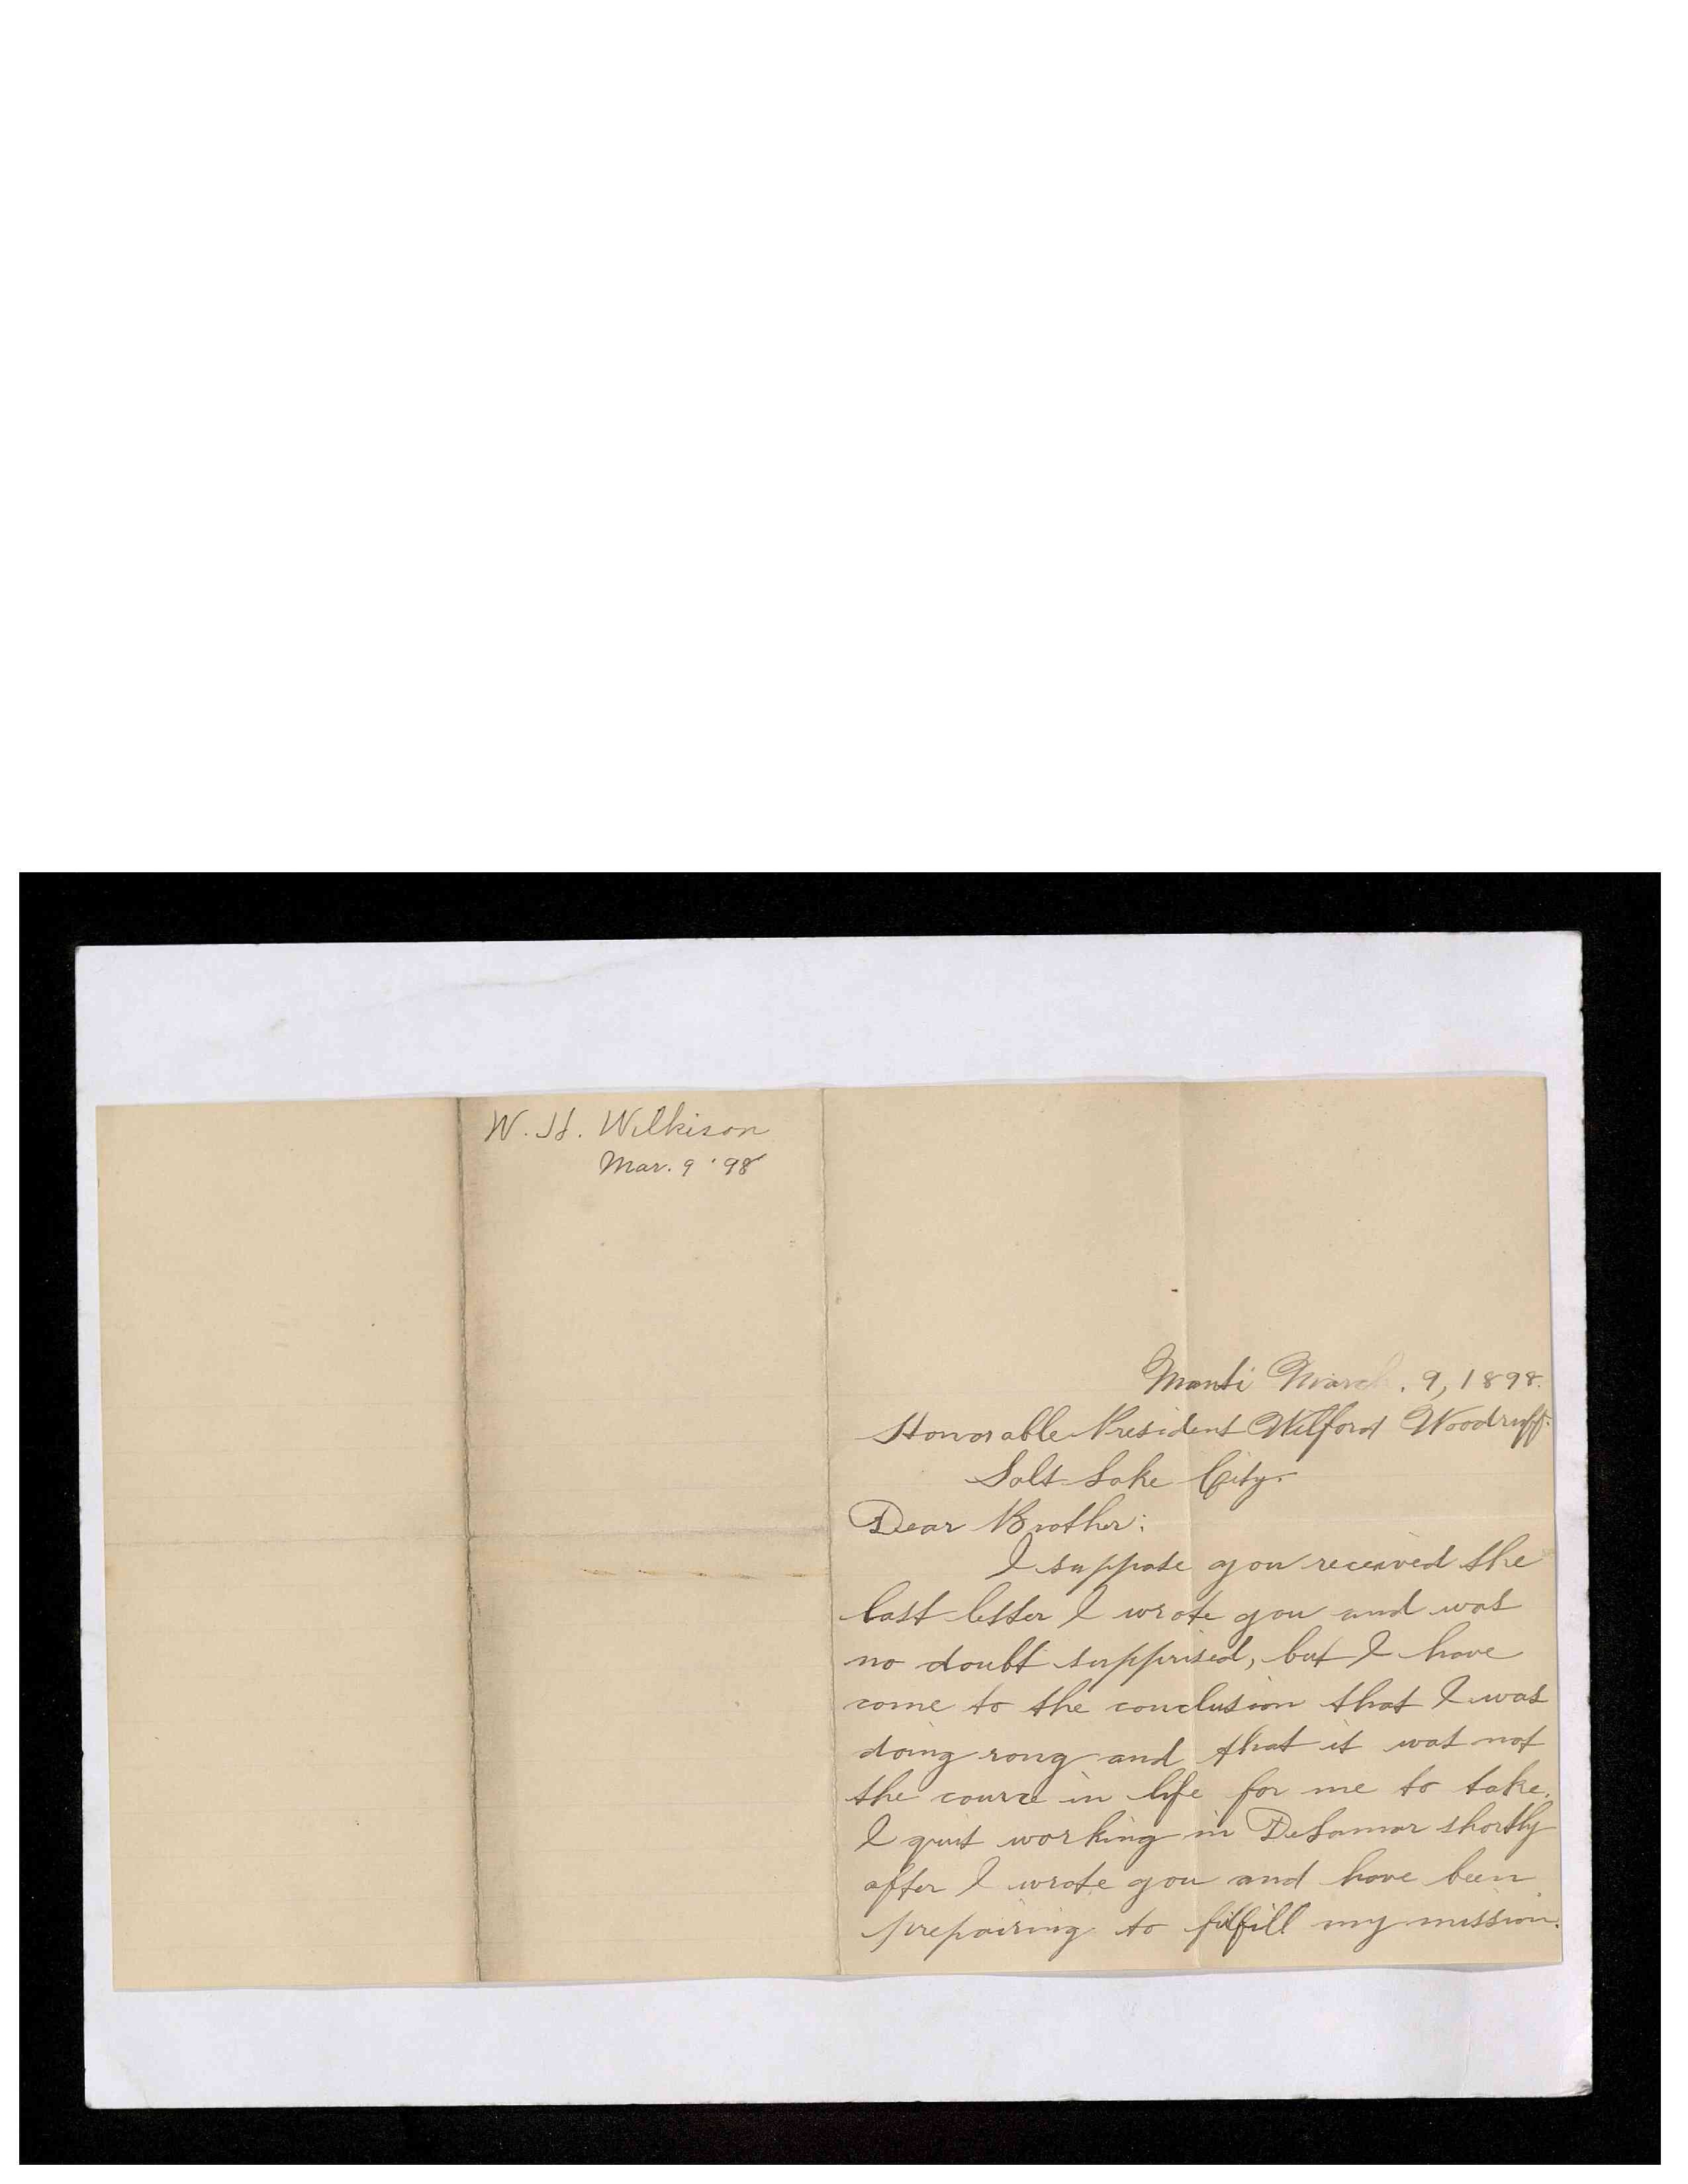 W. H. Wilkison
Mar. 9 '98
Manti March. 9, 1898.
Honorable President Wilford Woodruff.
Salt Lake City.
Dear Brother:
I suppose you received the
last letter I wrote you and was
no doubt supprised, but I have
come to the conclusion that I was
doing rong and that it was not
the cource in life for me to take.
I quit working in DeLamar shortly
after I wrote you and have been
prepairing to fulfill my mission.